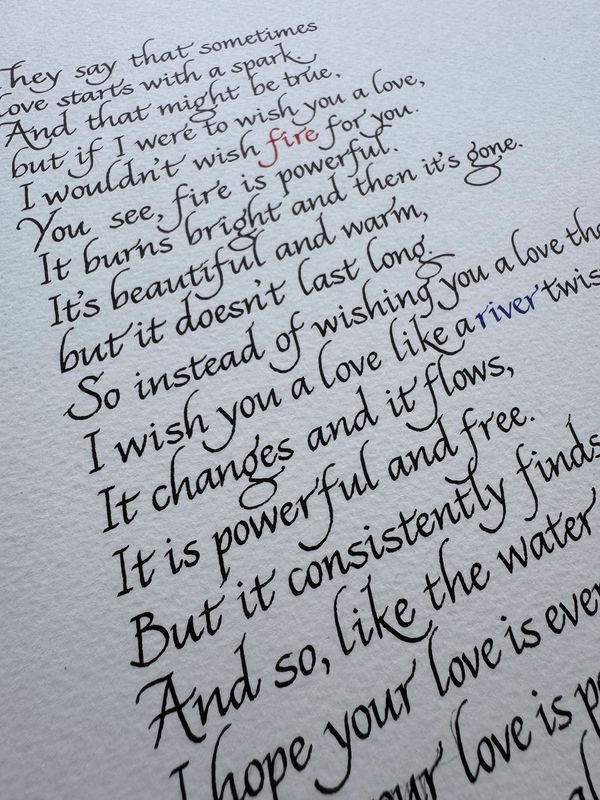 They say that sometimes
Love starts with a spark
And that might be true,
but if I were to wish you a love,
I wouldn't wish fire for you.
You see, fire is powerful.
It burns bright and then it's gone.
It's beautiful and warm,
but it doesn't last long.
So instead of wishing you a love
I wish you a love like a river
It changes and it flows,
It is powerful and free.
But it consistently finds
And so, like the water
I hope your love is
your love is